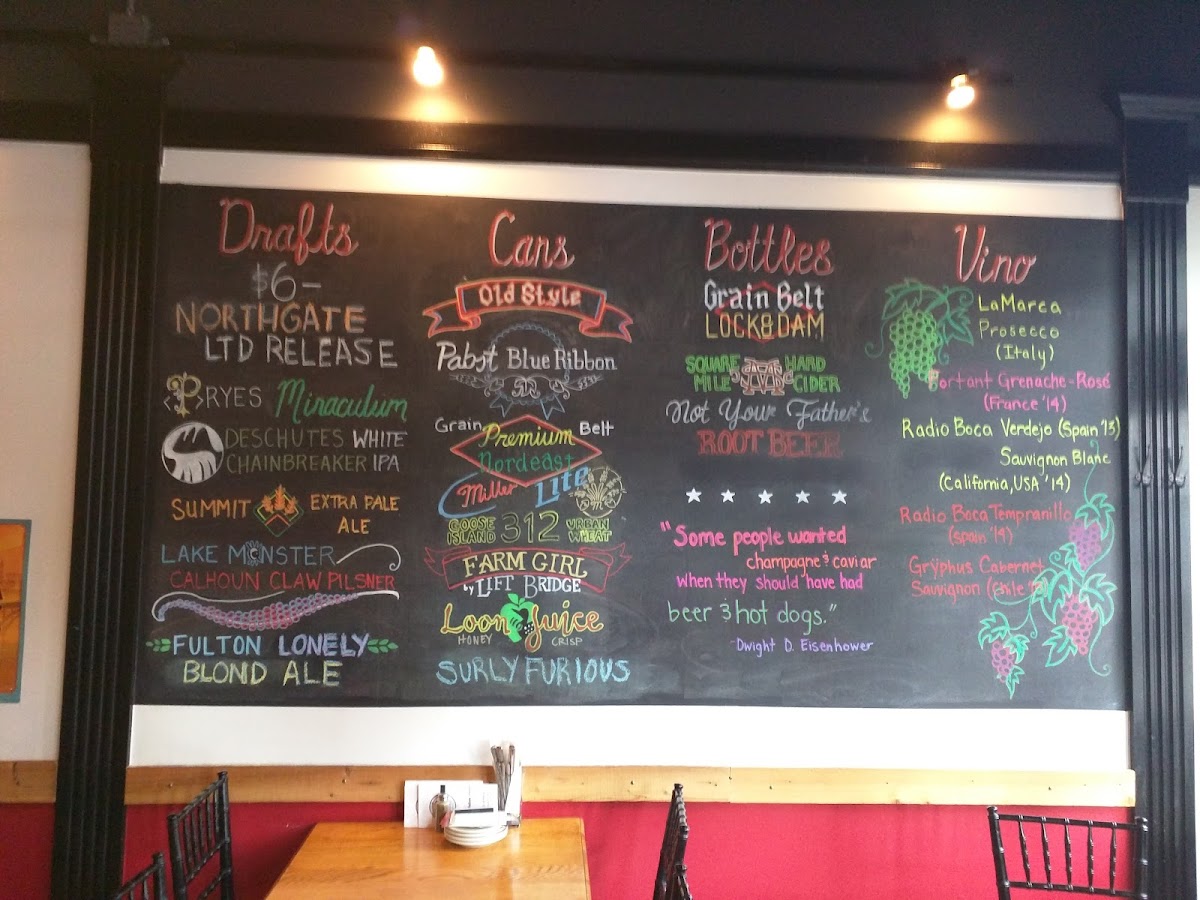 Drafts
$6-
NORTHGATE
LTD RELEASE
PRYES Miraculum
DESCHUTES WHITE
CHAINBREAKER IPA
SUMMIT EXTRA PALE
ALE
LAKE MONSTER
CALHOUN CLAW PILSNER
FULTON LONELY
BLOND ALE
Cans
Old Style
Pabst Blue Ribbon
Grain Belt
Premium
Nordeast
Miller Lite
GOOSE ISLAND 312 URBAN WHEAT
FARM GIRL
by LIFT BRIDGE
Loon Juice
HONEY CRISP
SURLY FURIOUS
Bottles
Grain Belt
LOCK & DAM
SQUARE HARD
MILE CIDER
Not Your Father's
ROOT BEER
"Some people wanted
champagne & caviar
when they should have had
beer & hot dogs."
-Dwight D. Eisenhower
Vino
LaMarca
Prosecco
(Italy)
Portant Grenache-Rosé
(France '14)
Radio Boca Verdejo (Spain '13)
Sauvignon Blanc
(California, USA '14)
Radio Boca Tempranillo
(Spain '14)
Grÿphus Cabernet
Sauvignon (Chile